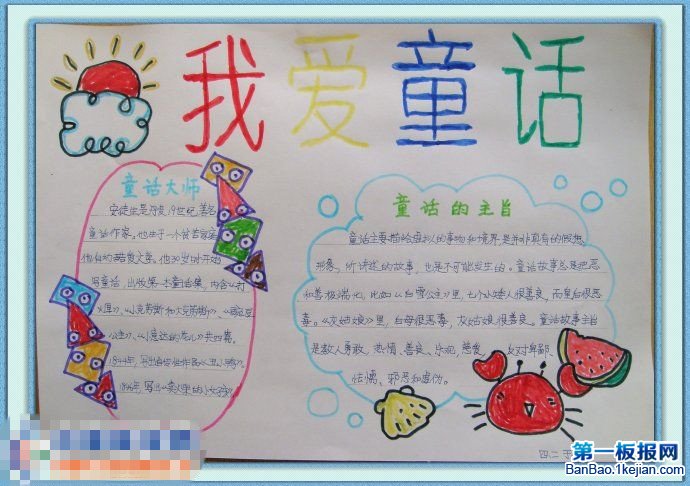 我爱童话
童话大师
安徒生是丹麦19世纪著名
童话作家。他生于一个贫苦家庭
他自幼酷爱文学。他30岁时开始
写童话,出版第一本童话集,内含《打
火匣》、《小克劳斯和大克劳斯》、《豌豆
公主》、《小意达的花儿》共四篇。
1844年,写出自传性作品《丑小鸭》。
1846年,写出《卖火柴的小女孩》。
童话的主旨
童话主要描绘虚拟的事物和境界,是并非真有的假想
形象,所讲述的故事,也是不可能发生的。童话故事总是把恶
和善极端化,比如《白雪公主》里,七个小矮人很善良,而皇后很恶
毒。《灰姑娘》里,后母很恶毒,灰姑娘很善良。童话故事主旨
是教人勇敢、热情、善良、乐观、慈爱,反对卑鄙、
怯懦、邪恶和虚伪。
四二
第一板报网
BanBao.1kejian.com